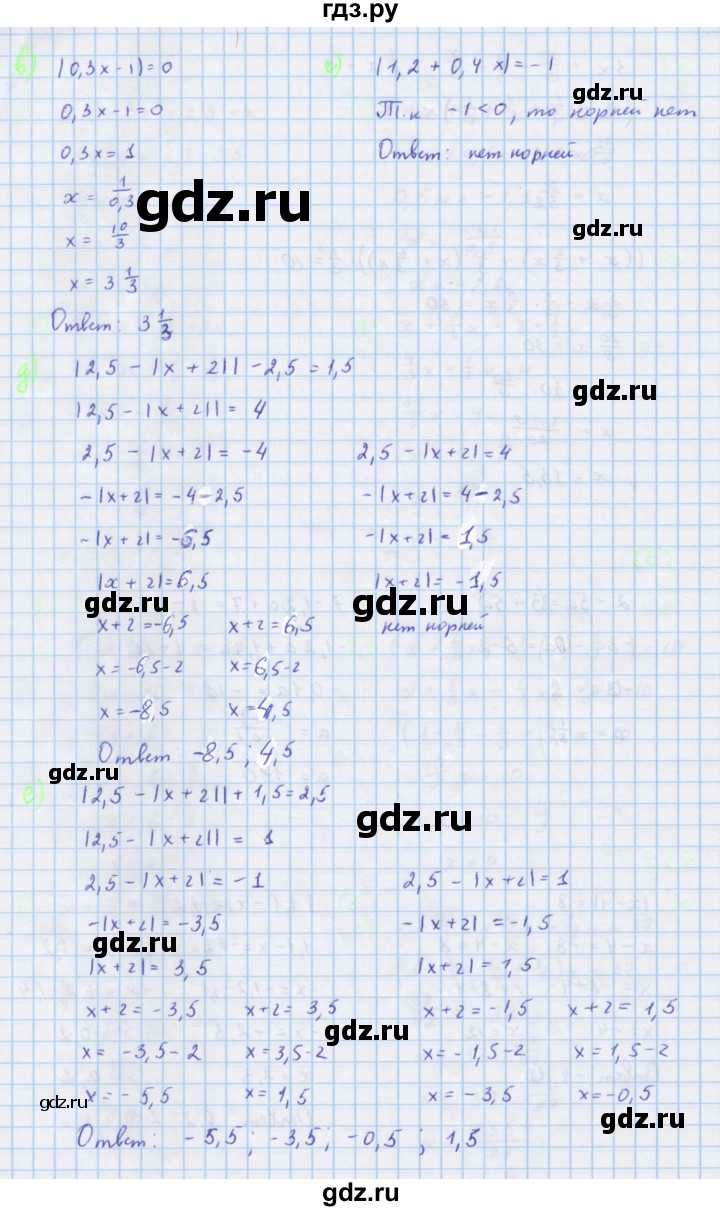 гдз.ру
в) |0,3x-1|=0
0,3x-1=0
0,3x=1
x = 1/0,3
x = 10/3
x = 3 1/3
Ответ: 3 1/3
|1,2 + 0,4 x|=-1
gdz.ru
Т.к -1<0, то корней нет
Ответ: нет корней
gdz.ru
gdz.ru
д) |2,5 - |x + 2|| - 2,5 = 1,5
gdz.ru
|2,5 - |x + 2|| = 4
2,5 - |x + 2| = -4
-|x+2| = -4-2,5
-|x+2| = -6,5
|x + 2|=6,5
gdz.ru
x+2=-6,5 x+2=6,5
x=-6,5-2 x=6,5-2
x=-8,5 x=4,5
2,5 - |x+2|=4
-|x+2| = 4-2,5
-|x+2| = 1,5
|x+2|= -1,5
gdz.ru
нет корней
Ответ -8,5 ; 4,5
gdz.ru
е) |2,5 - |x+2|| + 1,5=2,5
gdz.ru
|2,5 - |x+2|| = 1
2,5 - |x+2| = -1
-|x+2| = -3,5
gdz.ru
|x+2| = 3,5
x+2= -3,5 x+2= 3,5
x= -3,5-2 x=3,5-2
x=-5,5 x=1,5
2,5 - |x+2|= 1
-|x+2| = -1,5
|x+2|= 1,5
x+2=-1,5 x+2= 1,5
gdz.ru
x=-1,5-2 x= 1,5-2
x= -3,5 x=-0,5
gdz.ru
gdz.ru
Ответ: -5,5 ; -3,5; -0,5 ; 1,5
gdz.ru